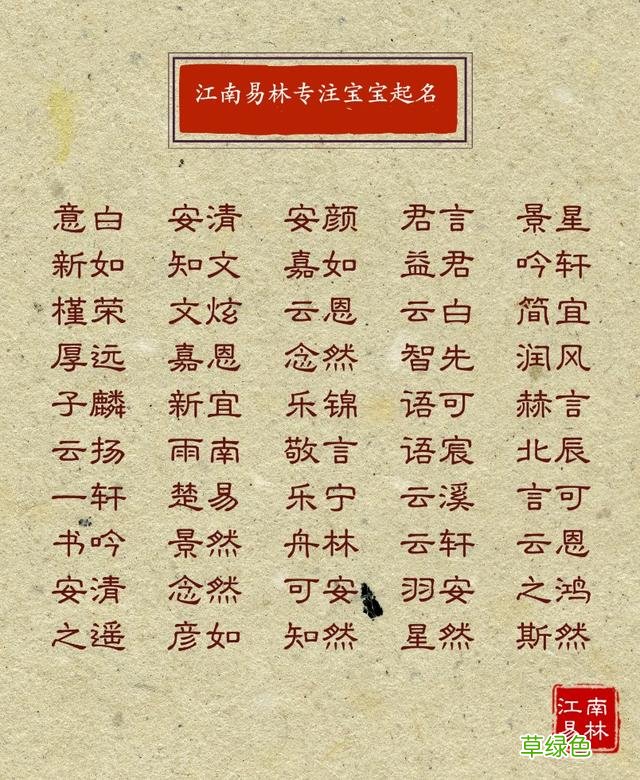 江南易林专注宝宝起名
意白 安清 安颜 君言 景星
新如 知文 嘉如 益君 吟轩
槿荣 文炫 云恩 云白 简宜
厚远 嘉恩 念然 智先 润风
子麟 新宜 乐锦 语可 赫言
云扬 雨南 敬言 语宸 北辰
一轩 楚易 乐宁 云溪 言可
书吟 景然 舟林 云轩 云恩
安清 念然 可安 羽安 之鸿
之遥 彦如 知然 星然 斯然
江南
易林
草绿色